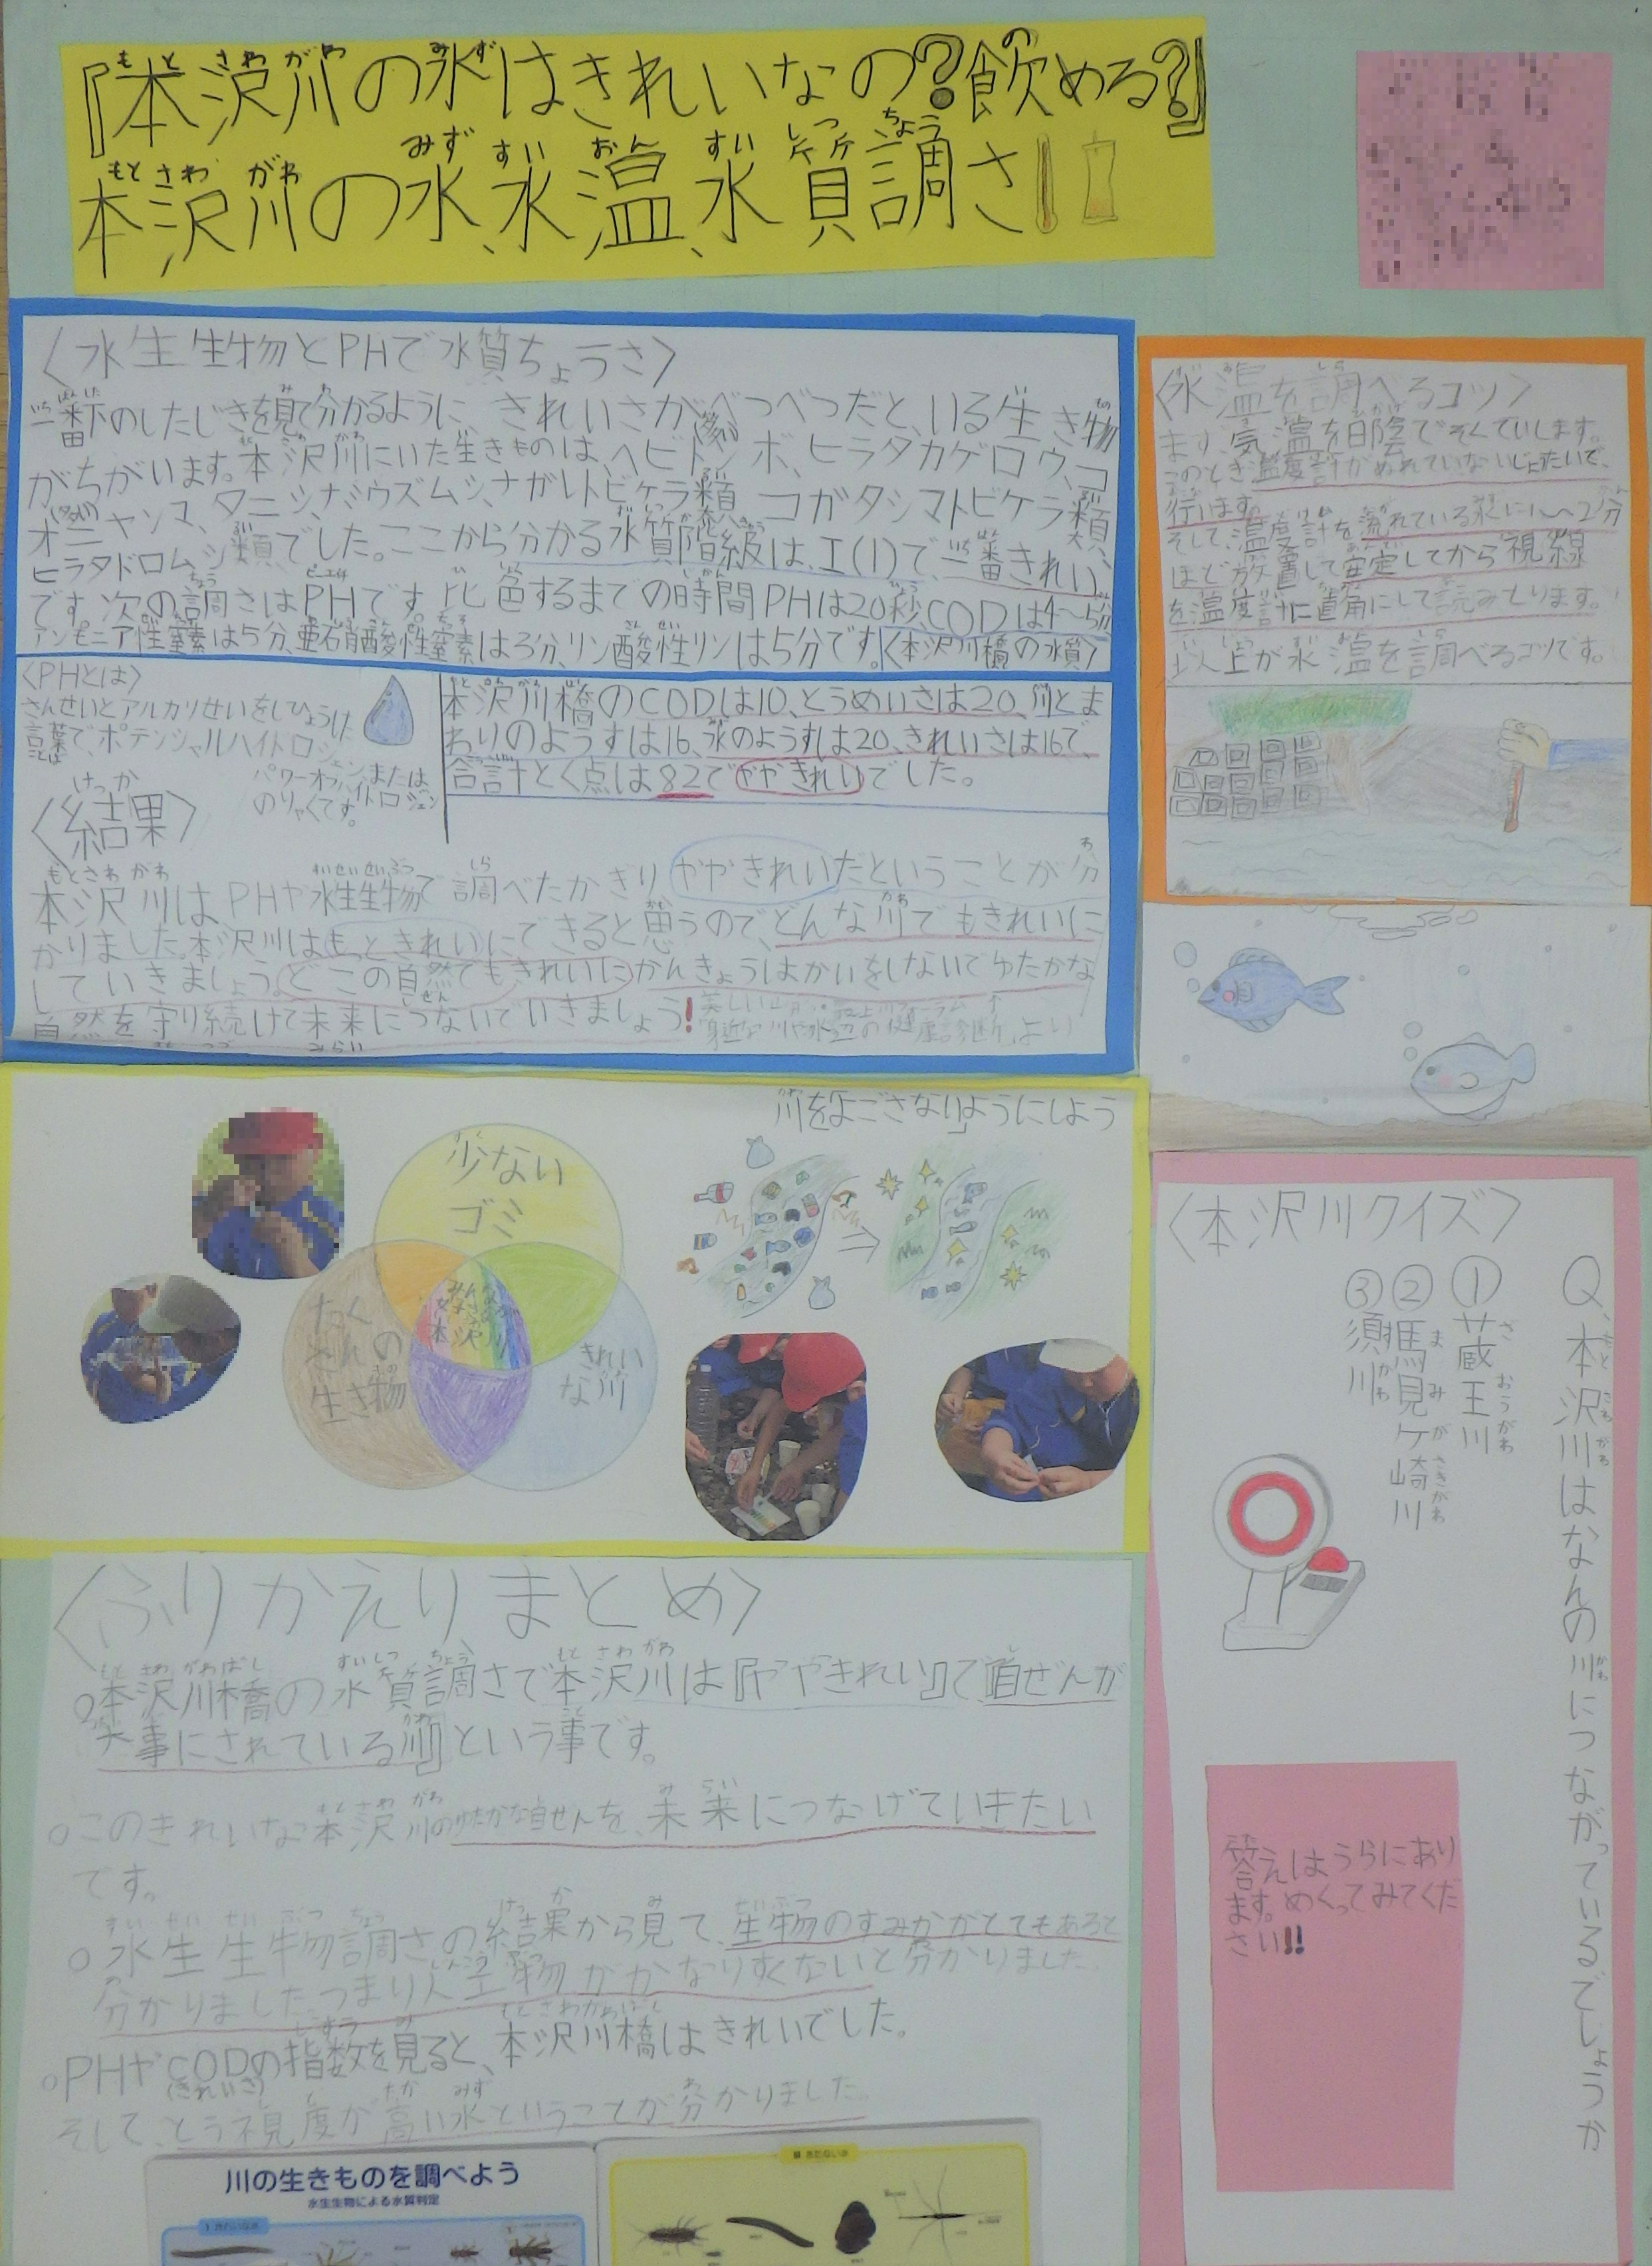 『本沢川の水はきれいなの?飲める?』
本沢川の水、水温、水質調さ
〈水生生物とPHで水質ちょうさ〉
一番下のしたじきを見て分かるように、きれいさがべつべつだと、いる生き物
がちがいます。本沢川にいた生きものは、ヘビトンボ、ヒラタカゲロウ、コ
オニヤンマ、タニシ、ナミウズムシ、ナガレトビケラ類、コガタシマトビケラ類、
ヒラタドロムシ類でした。ここから分かる水質階級は、I(1)で、一番きれい
です。次の調さはPHです。比色するまでの時間PHは20秒、CODは4〜5分、
アンモニア性窒素は5分、亜硝酸性窒素は3分、リン酸性リンは5分です。〈本沢川橋の水質〉
〈PHとは〉
さんせいとアルカリせいをしひょうした
言葉で、ポテンシャルハイドロジェン
パワーオブハイドロジェン
または
のりゃくです。
本沢川橋のCODは10、とうめいさは20、川とま
わりのようすは16、水のようすは20、きれいさは16で、
合計とく点は82でややきれいでした。
〈結果〉
本沢川は、PHや水生生物で調べたかぎりややきれいだということが分
かりました。本沢川はもっときれいにできると思うので、どんな川でもきれいに
していきましょう。どこの自然でもきれいにかんきょうはかいをしないでゆたかな
自然を守り続けて未来につないでいきましょう!
身近な川や水辺の健康診断より
〈水温を調べるコツ〉
まず、気温を日陰でそくていします。
このとき温度計がぬれていないじょたいで、
行います。
そして、温度計を流れている水に1〜2分
ほど放置して安定してから視線
を温度計に直角にして読みとります。
以上が水温を調べるコツです。
川をよごさないようにしよう
少ない
ゴミ
たく
さんの
生き物
きれい
な川
みんなが
好きな
本沢川
〈本沢川クイズ〉
Q、本沢川はなんの川につながっているでしょうか
①蔵王川
②馬見ケ崎川
③須川
答えはうらにあり
ます。めくってみてくだ
さい!!
〈ふりかえりまとめ〉
○本沢川橋の水質調さで本沢川は『ややきれい』で『自ぜんが
大事にされている川』という事です。
○このきれいな本沢川のゆたかな自ぜんを、未来につなげていきたい
です。
○水生生物調さの結果から見て、生物のすみかがとてもあると
分かりました。つまり人工物がかなりすくないと分かりました。
○PHやCODの指数を見ると、本沢川橋はきれいでした。
(きれいさ)
そして、とう視度が高い水ということが分かりました。
川の生きものを調べよう
水生生物による水質判定